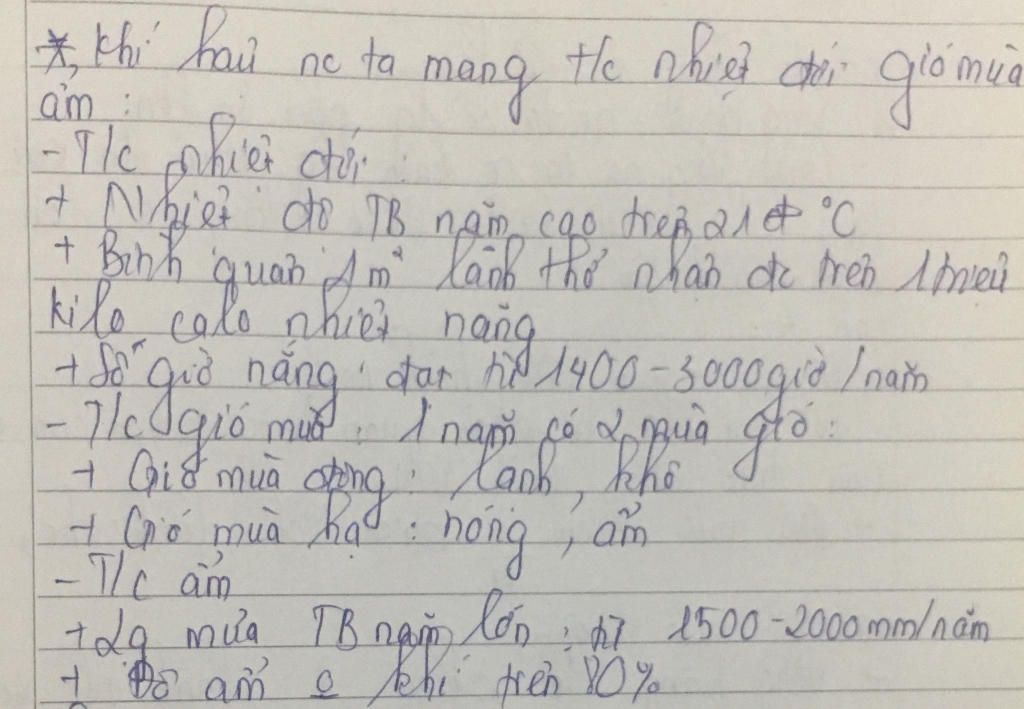 *, Khí hậu nc ta mang t/c nhiệt đới gió mùa
ẩm :
- T/c nhiệt đới :
+ Nhiệt độ TB năm cao trên 21 °C
+ Bình quân 1m² lãnh thổ nhận đc trên 1 triệu
kilo calo nhiệt năng
+ Số giờ nắng đạt từ 1400 - 3000 giờ / năm
- T/c gió mùa : 1 năm có 2 mùa gió :
+ Gió mùa đông : lạnh, khô
+ Gió mùa hạ : nóng, ẩm
- T/c ẩm
+ Lg mưa TB năm lớn : từ 1500 - 2000 mm/năm
+ Độ ẩm o khí trên 80%